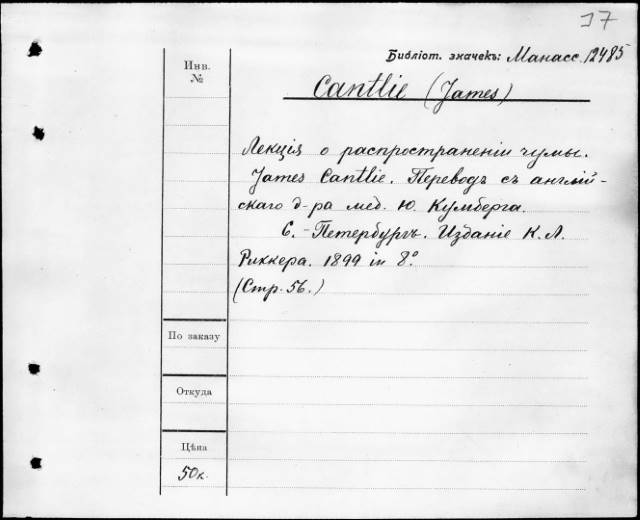 37
Библіот. значекъ: Манасс. 12485
Инв.
№
Cantlie (James)
Лекція о распространеніи чумы.
James Cantlie. Переводъ съ англій-
скаго д-ра мед. Ю. Кумберга.
С.-Петербургъ. Изданіе К. Л.
Риккера. 1899 in 8º
(Стр. 56.)
По заказу
Откуда
Цѣна
50к.